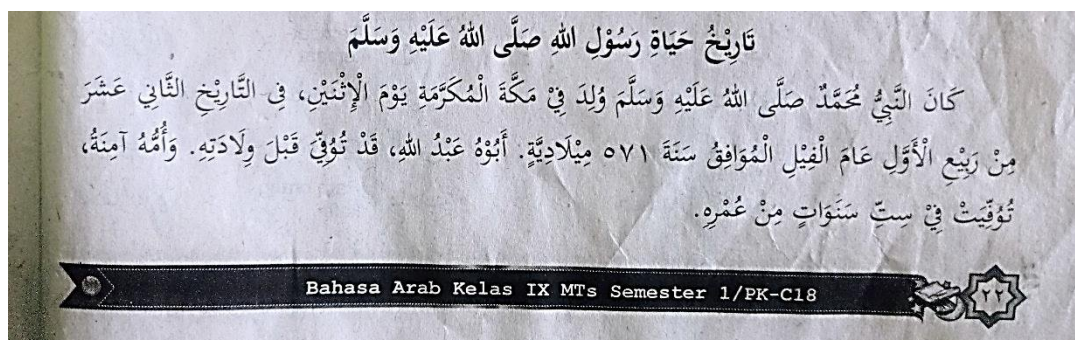 تَارِيْخُ حَيَاةِ رَسُوْلِ اللهِ صَلَّى اللهُ عَلَيْهِ وَسَلَّمَ
كَانَ النَّبِيُّ مُحَمَّدٌ صَلَّى اللهُ عَلَيْهِ وَسَلَّمَ وُلِدَ فِيْ مَكَّةَ الْمُكَرَّمَةِ يَوْمَ الْإِثْنَيْنِ، فِى التَّارِيْخِ الثَّانِي عَشَرَ
مِنْ رَبِيْعِ الْأَوَّلِ عَامَ الْفِيْلِ الْمُوَافِقُ سَنَةَ ٥٧١ مِيْلَادِيَّةٍ. أَبُوْهُ عَبْدُ اللهِ، قَدْ تُوُفِّيَ قَبْلَ وِلَادَتِهِ. وَأُمُّهُ آمِنَةُ،
تُوُفِّيَتْ فِيْ سِتِّ سَنَوَاتٍ مِنْ عُمْرِهِ.
Bahasa Arab Kelas IX MTs Semester 1/PK-C18
٢٢